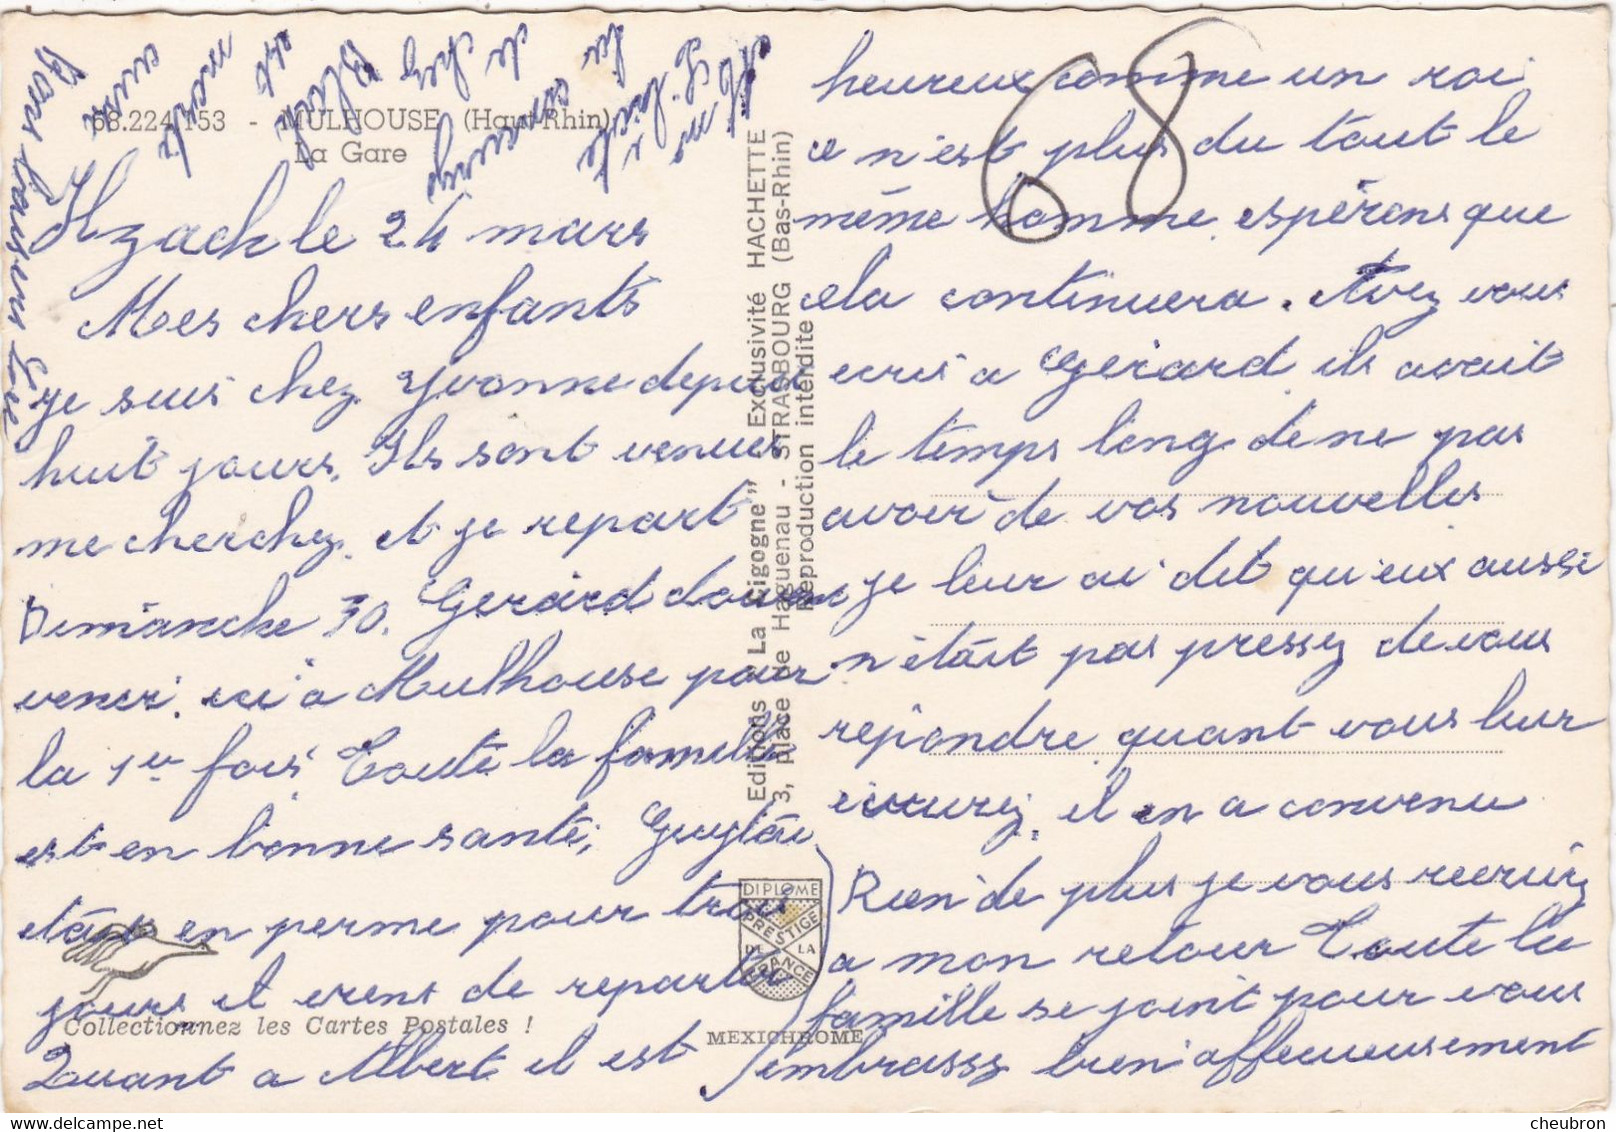 68.224.153 - MULHOUSE (Haut-Rhin)
La Gare
Illzach le 24 mars
Mes chers enfants
je suis chez Yvonne depuis
huit jours. Ils sont venues
me cherchez. et je repart
Dimanche 30. Gerard
venir. ici a Mulhouse pour
la 1er fois Toute la famille
est en bonne santé,
était en perme pour trois
jours et viens de repartir
Quant a Albert il est
heureux comme un roi
ce n'est plus du tout le
même homme. espérons que
cela continuera. Avez vous
ecris a Gerard ils avait
le temps long de ne pas
avoir de vos nouvelles
je leur ai dit qu'eux aussi
n'était pas pressez de vous
repondre quant vous leur
il en a convenu
Rien de plus je vous
a mon retour Toute la
famille se joint pour vous
embrassz bien affecueusement
Editions "La Cigogne" Exclusivité HACHETTE
3, place de Haguenau - STRASBOURG (Bas-Rhin)
Reproduction interdite
DIPLOME
PRESTIGE
DE LA
FRANCE
Collectionnez les Cartes Postales !
MEXICHROME
Bons baisers
de chez
est
68
www.delcampe.net
cheubron